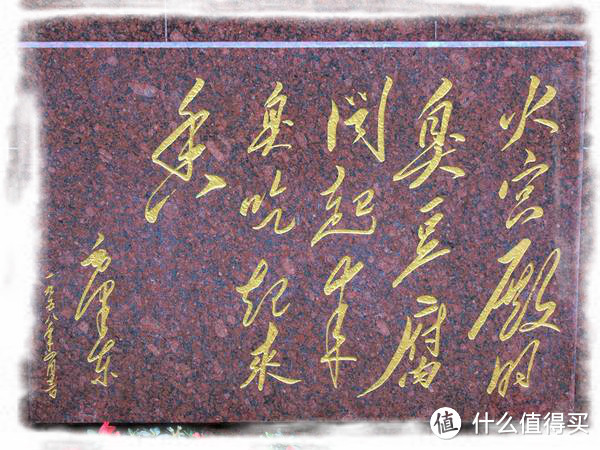 火宫殿的
臭豆腐
闻起来
臭吃起来
香
毛泽东
一九五八年
值 什么值得买